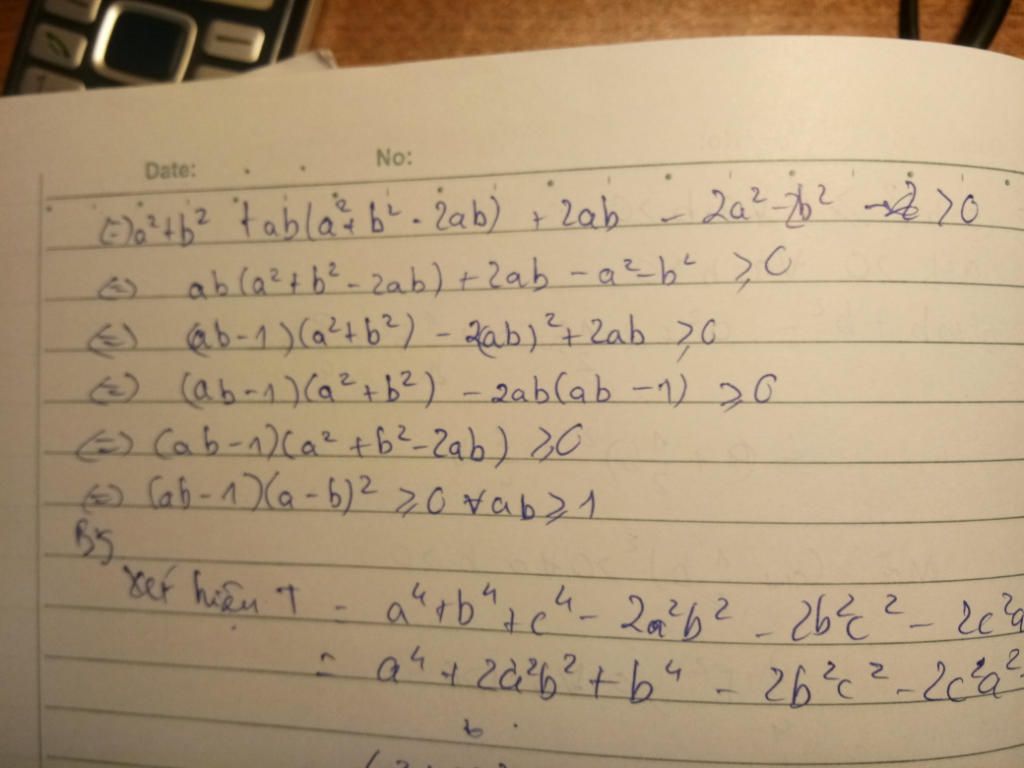 Date: . . No:
(=) a²+b² + ab(a²+b² - 2ab) + 2ab - 2a² - 2b² > 0
(=) ab(a²+b² - 2ab) + 2ab - a² - b² ⩾ 0
(=) (ab-1)(a²+b²) - 2(ab)² + 2ab ⩾ 0
(=) (ab-1)(a²+b²) - 2ab(ab-1) ⩾ 0
(=) (ab-1)(a²+b²-2ab) ⩾ 0
(=) (ab-1)(a-b)² ⩾ 0 ∀ab ⩾ 1
B5
Xét hiệu T = a⁴+b⁴+c⁴ - 2a²b² - 2b²c² - 2c²a
= a⁴ + 2a²b² + b⁴ - 2b²c² - 2c²a²